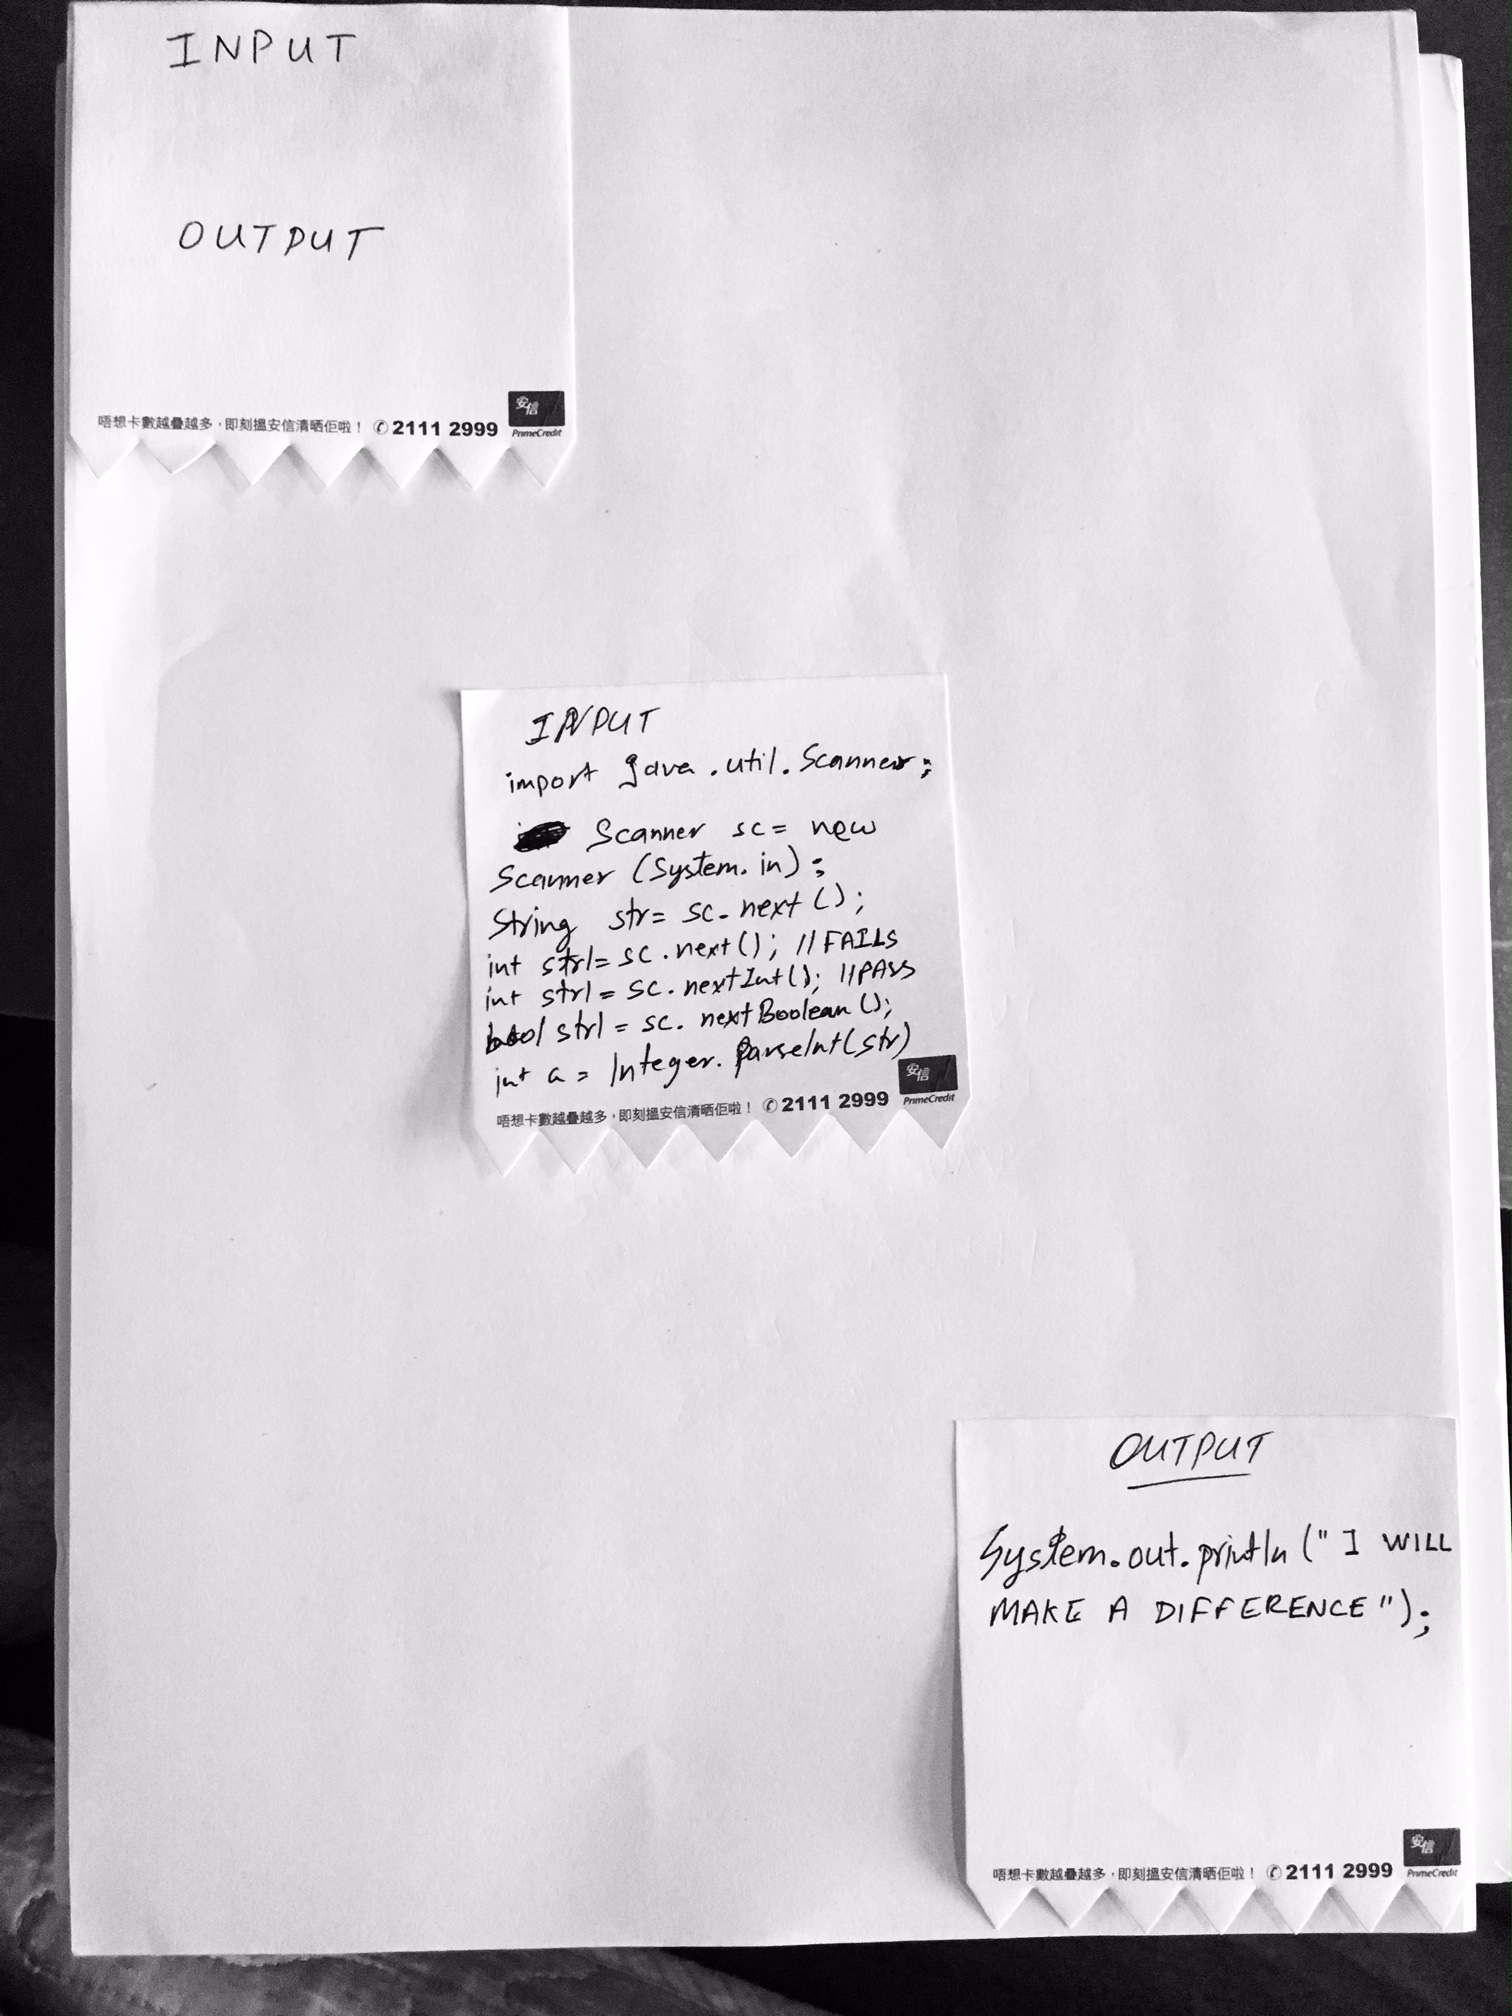 INPUT
OUTPUT
唔想卡數越疊越多，即刻搵安信清晒佢啦！ ✆ 2111 2999
安信
PrimeCredit
INPUT
import java.util.Scanner;
Scanner sc = new
Scanner (System.in);
String str = sc.next();
int str1 = sc.next(); //FAILS
int str1 = sc.nextInt(); //PASS
bool str1 = sc.nextBoolean();
int a = Integer.ParseInt(str)
唔想卡數越疊越多，即刻搵安信清晒佢啦！ ✆ 2111 2999
安信
PrimeCredit
OUTPUT
System.out.println(" I WILL
MAKE A DIFFERENCE");
唔想卡數越疊越多，即刻搵安信清晒佢啦！ ✆ 2111 2999
安信
PrimeCredit